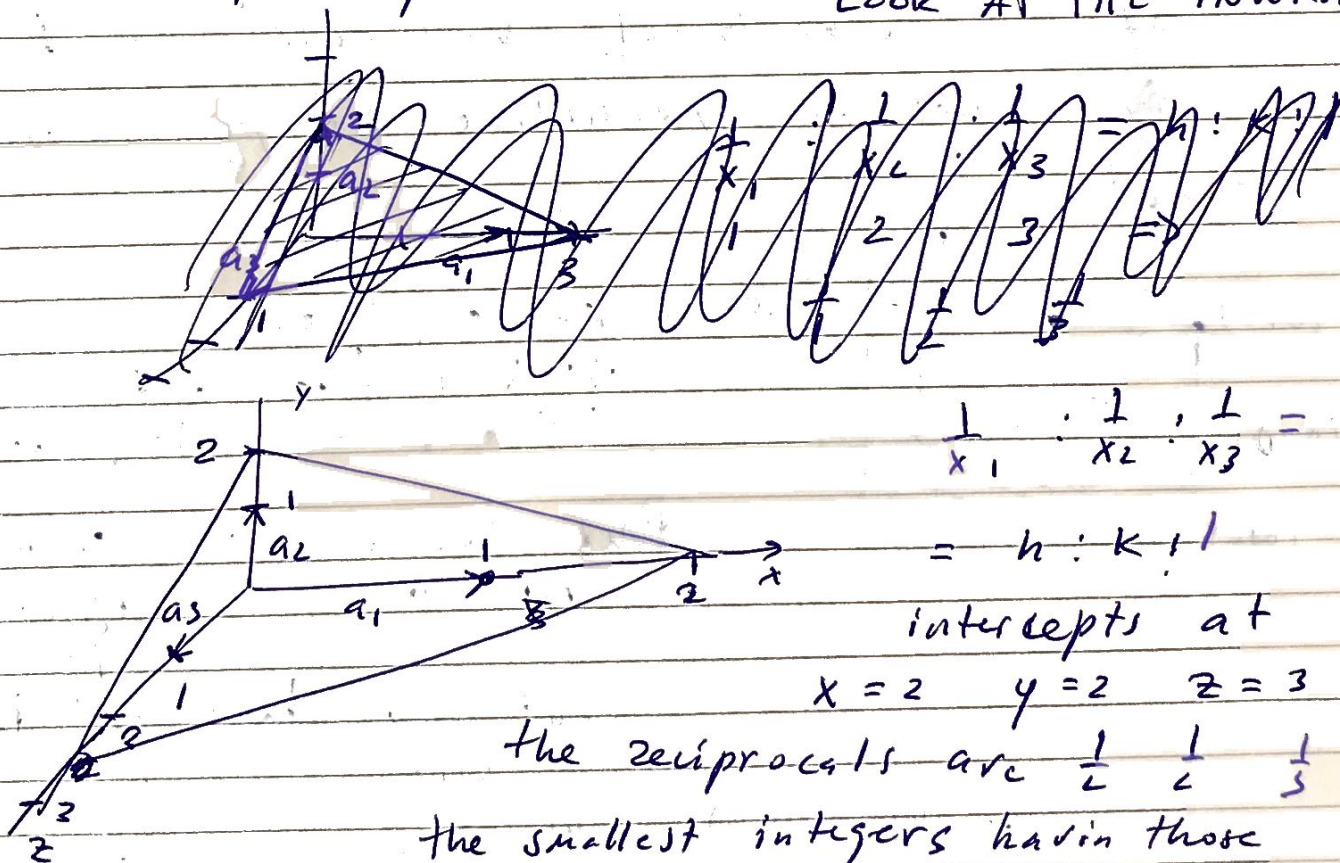 LOOK AT THE
2
a2
a3
a1
3
1
1/x1 : 1/x2 : 1/x3 = h : k :
1 2 3 =>
1/1 1/2 1/3
y
2
1
a2
1
2
x
a3
a1
3
1
2
3
z
1/x1 : 1/x2 : 1/x3 =
= h : k : l
intercepts at
x = 2 y = 2 z = 3
the reciprocals are 1/2 1/2 1/3
the smallest integers havin those